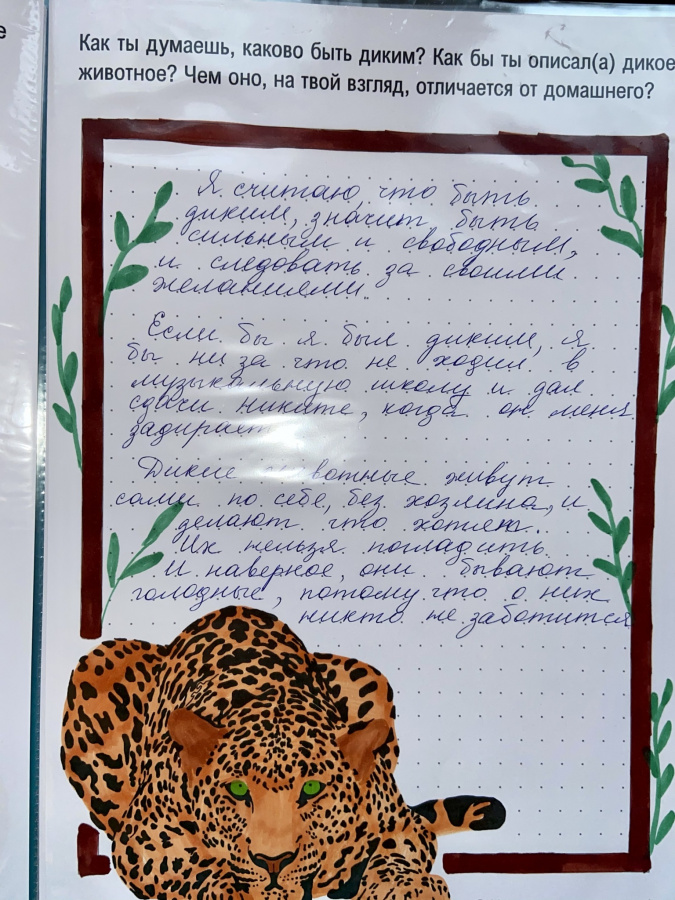 е
Как ты думаешь, каково быть диким? Как бы ты описал(а) дикое
животное? Чем оно, на твой взгляд, отличается от домашнего?
Я считаю, что быть
диким, значит быть
сильным и свободным,
и следовать за своими
желаниями.
Если бы я был диким, я
бы ни за что не ходил в
музыкальную школу и дал
сдачи Никите, когда он меня
задирает
Дикие животные живут
сами по себе, без хозяина, и
делают что хотят.
Их нельзя погладить
И наверное, они бывают
голодные, потому что о них
никто не заботится